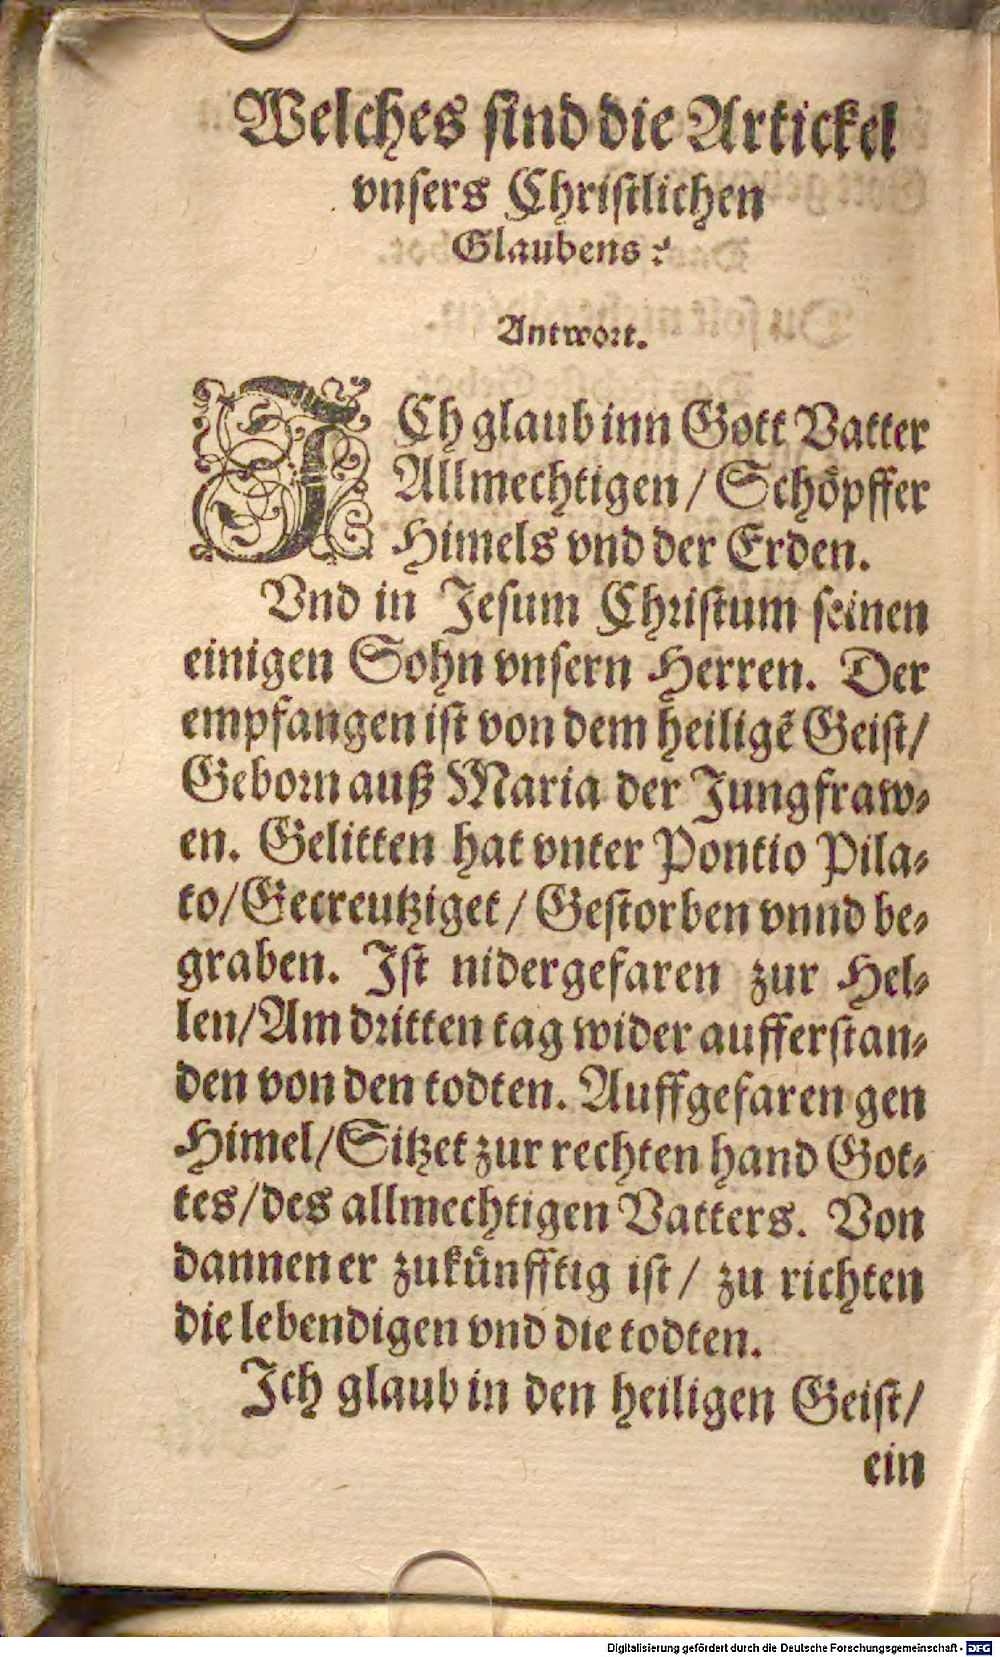 Welches sind die Artickel
vnsers Christlichen
Glaubens?
Antwort.
ICh glaub inn Gott Vatter
Allmechtigen / Schöpffer
Himels vnd der Erden.
Vnd in Jesum Christum seinen
einigen Sohn vnsern Herren. Der
empfangen ist von dem heiligẽ Geist /
Geborn auß Maria der Jungfraw⸗
en. Gelitten hat vnter Pontio Pila⸗
to / Gecreutziget / Gestorben vnnd be⸗
graben. Ist nidergefaren zur Hel⸗
len / Am dritten tag wider aufferstan⸗
den von den todten. Auffgefaren gen
Himel / Sitzet zur rechten hand Got⸗
tes / des allmechtigen Vatters. Von
dannen er zukünfftig ist / zu richten
die lebendigen vnd die todten.
Ich glaub in den heiligen Geist /
ein
Digitalisierung gefördert durch die Deutsche Forschungsgemeinschaft - DFG